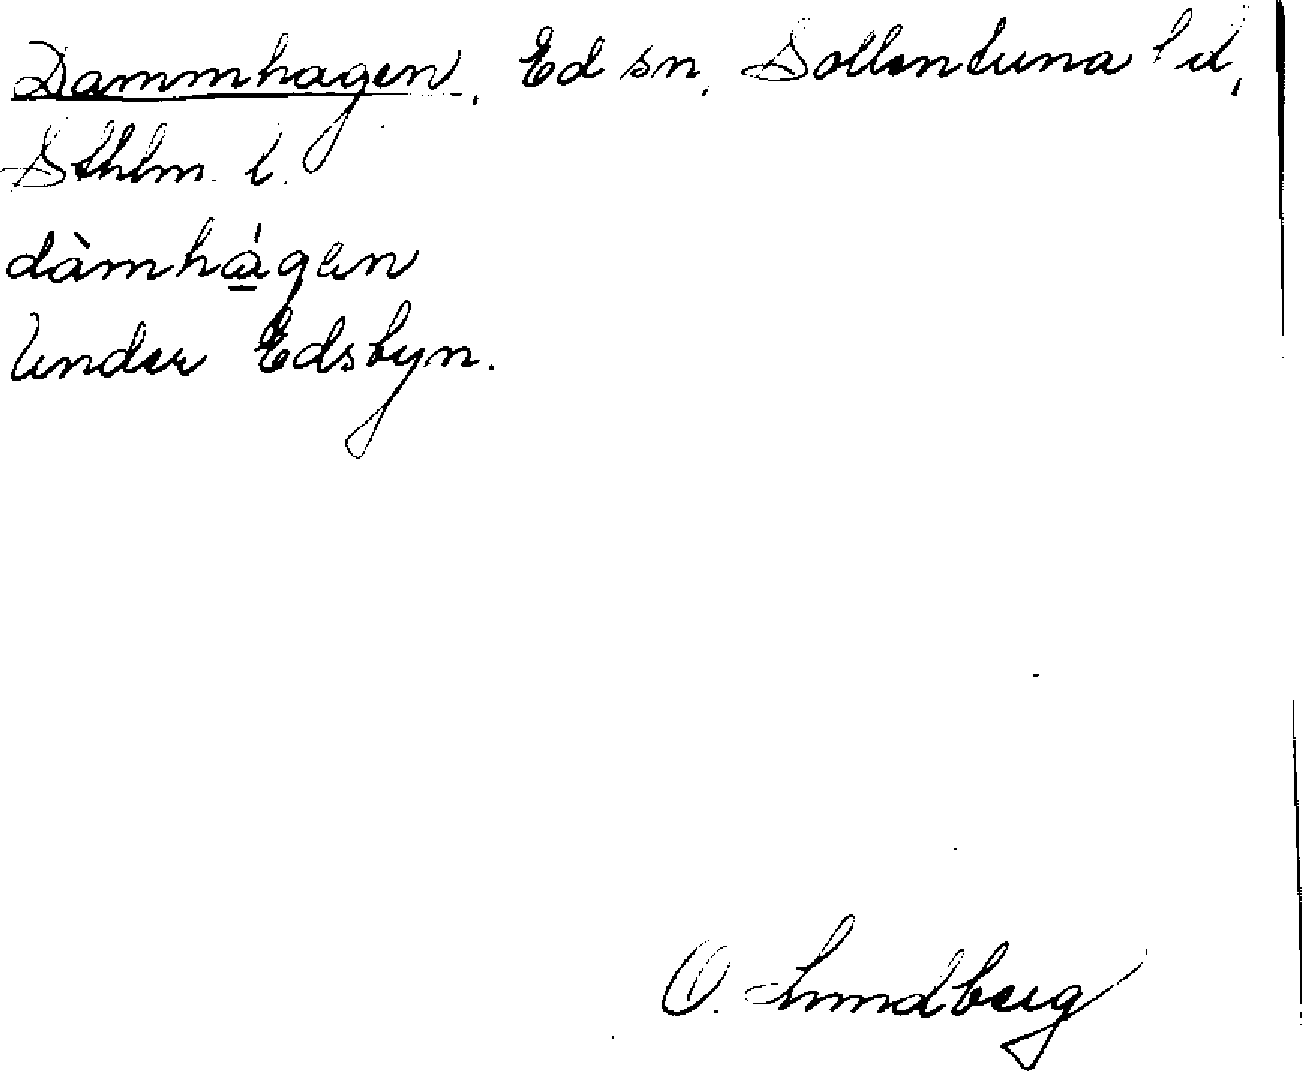 Dammhagen, Ed sn, Sollentuna hd,
Sthlm l.
dàmhá̱gen
Under Edsbyn.
O. Lundberg